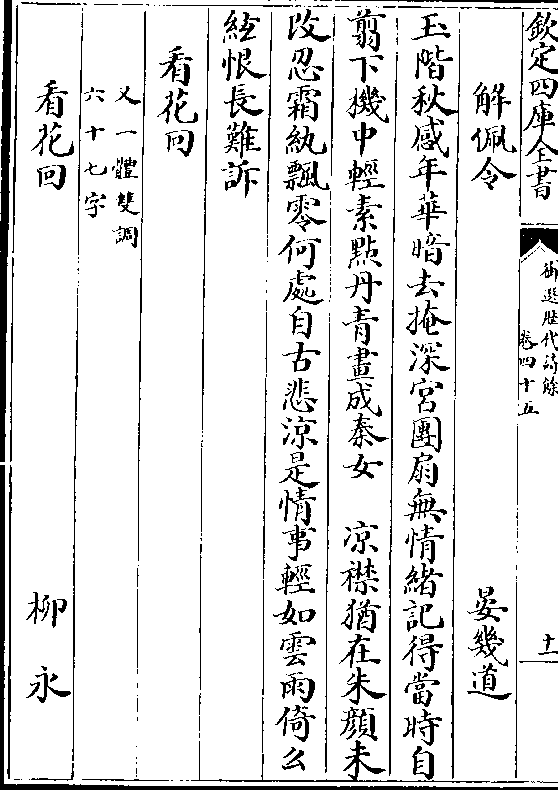 欽定四庫全書
御選歷代詩餘
卷四十五
十一
解佩令 晏幾道
玉階秋感年華暗去掩深宮團扇無情緒記得當時自
翦下機中輕素點丹青畫成秦女 凉襟猶在朱顔未
改忍霜紈飄零何處自古悲涼是情事輕如雲雨倚么
絃恨長難訴
看花回
又一體雙調
六十七字
看花回 柳永